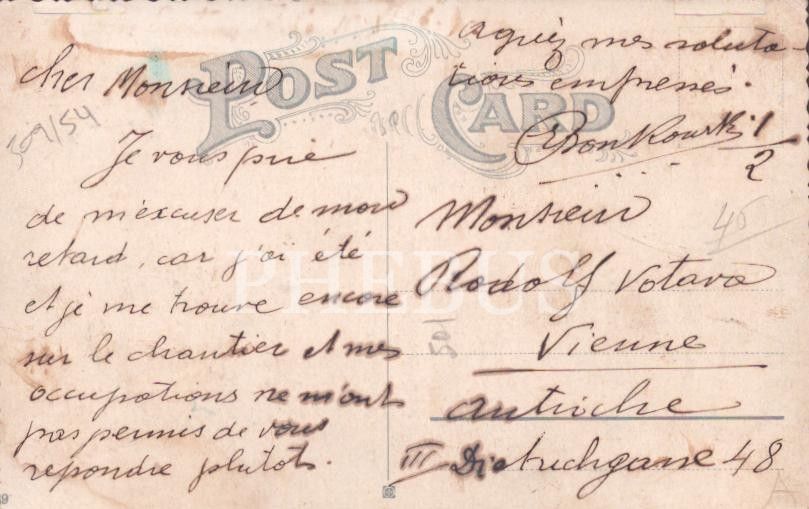 POST CARD
cher Monsieur
Je vous prie
de m'excuser de mon
retard, car j'ai été
et je me trouve encore
sur le chantier et mes
occupations ne m'ont
pas permis de vous
repondre plutot.
agréez mes saluta-
tions empressés.
1/2
Monsieur
Rodolf Votava
Vienne
Autriche
III Dietrichgasse 48
309/54
45
501
PHEBUS